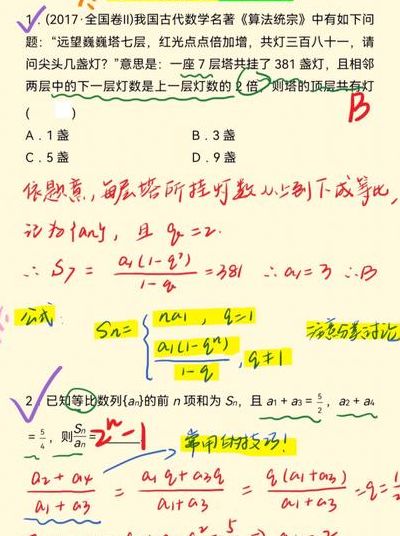 1. (2017·全国卷II)我国古代数学名著《算法统宗》中有如下问
题：“远望巍巍塔七层，红光点点倍加增，共灯三百八十一，请
问尖头几盏灯？”意思是：一座 7 层塔共挂了 381 盏灯，且相邻
两层中的下一层灯数是上一层灯数的 2 倍，则塔的顶层共有灯
(    ) B
A. 1 盏 B. 3 盏
C. 5 盏 D. 9 盏
依题意，每层塔所挂灯数从上到下成等比，
记为{an}，且 q=2.
∴ S7 = a1(1-q^7)/(1-q) = 381 ∴ a1=3 ∴B
公式：
Sn= { na1, q=1
a1(1-q^n)/(1-q), q≠1
注意分类讨论
2. 已知等比数列{an}的前 n 项和为 Sn，且 a1+a3=5/2，a2+a4
=5/4，则Sn/an=2^n-1
常用的技巧!
(a2+a4)/(a1+a3) = (a1q+a3q)/(a1+a3) = q(a1+a3)/(a1+a3) =q=1/2